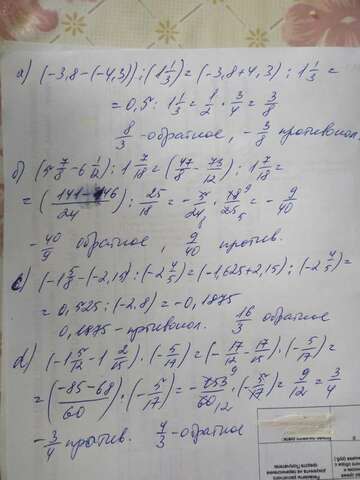 а) (-3,8-(-4,3)):(1 1/3)=(-3,8+4,3):1 1/3=
=0,5:1 1/3=1/2·3/4=3/8
8/3-обратное, -3/8 противопол.
б) (5 7/8-6 1/12):1 7/18=(47/8-73/12):1 7/18=
=(141-146/24):25/18=-5/24·18/25=-9/40
-40/9 обратное, 9/40 против.
с) (-1 5/8-(-2,15):(-2 4/5)=(-1,625+2,15):(-2 4/5)=
=0,525:(-2,8)=-0,1875
0,1875-противопол. 16/3 обратное
d) (-1 5/12-1 2/15)·(-5/17)=(-17/12-17/15)·(-5/17)=
=(-85-68/60)·(-5/17)=-153/60·(-5/17)=9/12=3/4
-3/4 против. 4/3-обратное